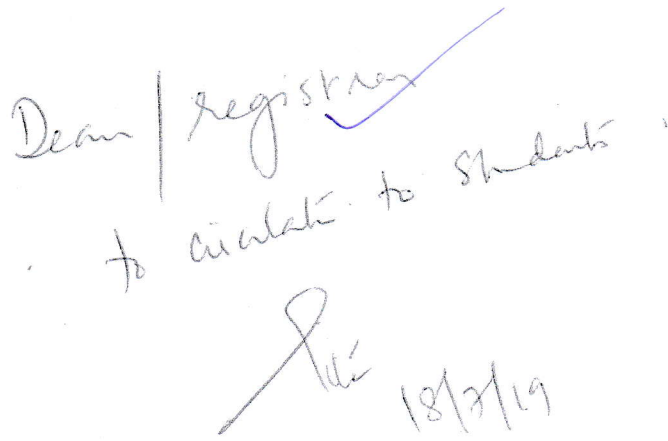 Dean | registrar
to circulate to students.
18/7/19